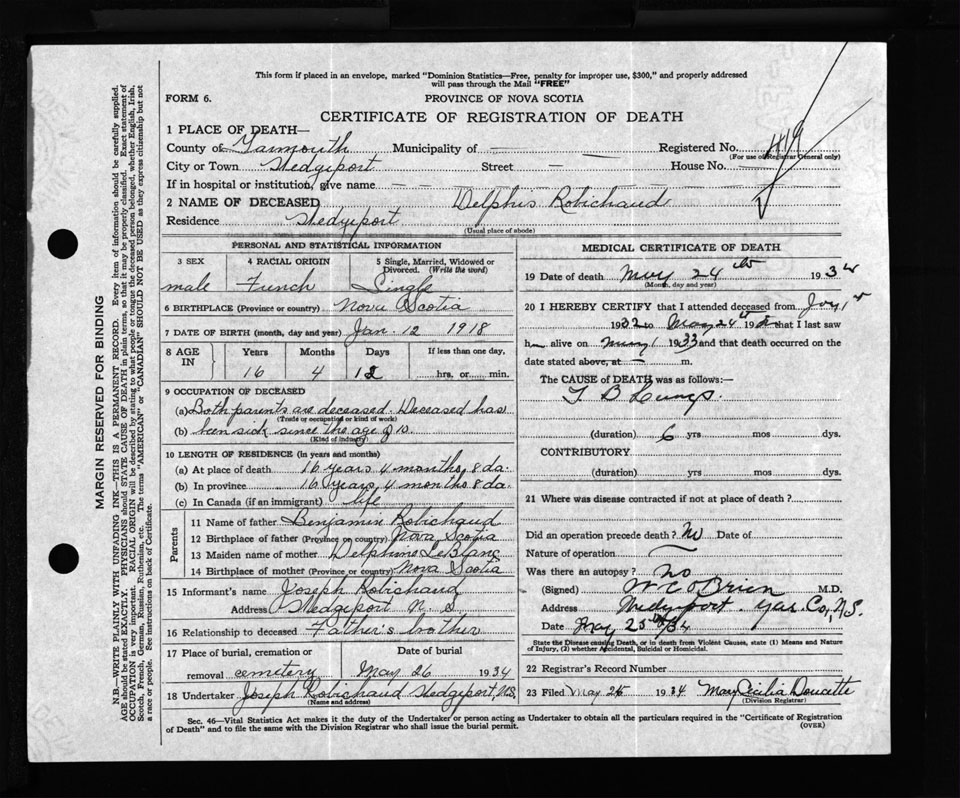 This form if placed in an envelope, marked "Dominion Statistics—Free, penalty for improper use, $300," and properly addressed
will pass through the Mail "FREE"
FORM 6.
PROVINCE OF NOVA SCOTIA
CERTIFICATE OF REGISTRATION OF DEATH
MARGIN RESERVED FOR BINDING
N.B.—WRITE PLAINLY WITH UNFADING INK—THIS IS A PERMANENT RECORD. Every item of information should be carefully supplied.
AGE should be stated EXACTLY. PHYSICIANS should STATE CAUSE OF DEATH in plain terms, so that it may be properly classified. Exact statement of
OCCUPATION is very important. RACIAL ORIGIN will be described by stating to what people or tongue the deceased person belonged, whether English, Irish,
Scotch, French, German, Russian, Ruthenian, etc. The terms "AMERICAN" or "CANADIAN" SHOULD NOT BE USED as they express citizenship but not
a race or people. See instructions on back of Certificate.
1 PLACE OF DEATH—
County of Yarmouth Municipality of — — Registered No. 419
(For use of Registrar General only)
City or Town Wedgeport Street — House No.
If in hospital or institution, give name — —
2 NAME OF DECEASED Delphis Robichaud
Residence Wedgeport
(Usual place of abode)
PERSONAL AND STATISTICAL INFORMATION
3 SEX 4 RACIAL ORIGIN 5 Single, Married, Widowed or Divorced. (Write the word)
male French Single
6 BIRTHPLACE (Province or country) Nova Scotia
7 DATE OF BIRTH (month, day and year) Jan. 12 1918
8 AGE IN Years Months Days If less than one day,
16 4 12 hrs. or min.
9 OCCUPATION OF DECEASED
(a) Both parents are deceased. Deceased has
(Trade or occupation or kind of work)
(b) been sick since the age of 10.
(Kind of industry)
10 LENGTH OF RESIDENCE (in years and months)
(a) At place of death 16 years 4 months, 8 da.
(b) In province 16 years, 4 months 8 da.
(c) In Canada (if an immigrant) life
Parents
11 Name of father Benjamin Robichaud
12 Birthplace of father (Province or country) Nova Scotia
13 Maiden name of mother Delphine LeBlanc
14 Birthplace of mother (Province or country) Nova Scotia
15 Informant's name Joseph Robichaud
Address Wedgeport N. S.
16 Relationship to deceased Father's brother
17 Place of burial, cremation or removal Date of burial
cemetery May 26 1934
18 Undertaker Joseph Robichaud Wedgeport, N.S.
(Name and address)
MEDICAL CERTIFICATE OF DEATH
19 Date of death May 24th 1934
(Month, day and year)
20 I HEREBY CERTIFY that I attended deceased from
1932 to May 24th 19 that I last saw
h alive on May 1 1933 and that death occurred on the
date stated above, at — m.
The CAUSE of DEATH was as follows:—
T B Lungs.
(duration) 6 yrs mos dys.
CONTRIBUTORY
(duration) yrs mos dys.
21 Where was disease contracted if not at place of death?
Did an operation precede death? No Date of
Nature of operation
Was there an autopsy? no
(Signed) W C O'Brien M.D.
Address Wedgeport Yar. Co, N.S.
Date May 25th 34
State the Disease causing Death, or in death from Violent Causes, state (1) Means and Nature
of Injury, (2) whether Accidental, Suicidal or Homicidal.
22 Registrar's Record Number
23 Filed May 26 1934 Mary Cecilia Doucette
(Division Registrar)
Sec. 46—Vital Statistics Act makes it the duty of the Undertaker or person acting as Undertaker to obtain all the particulars required in the "Certificate of Registration
of Death" and to file the same with the Division Registrar who shall issue the burial permit.
(OVER)